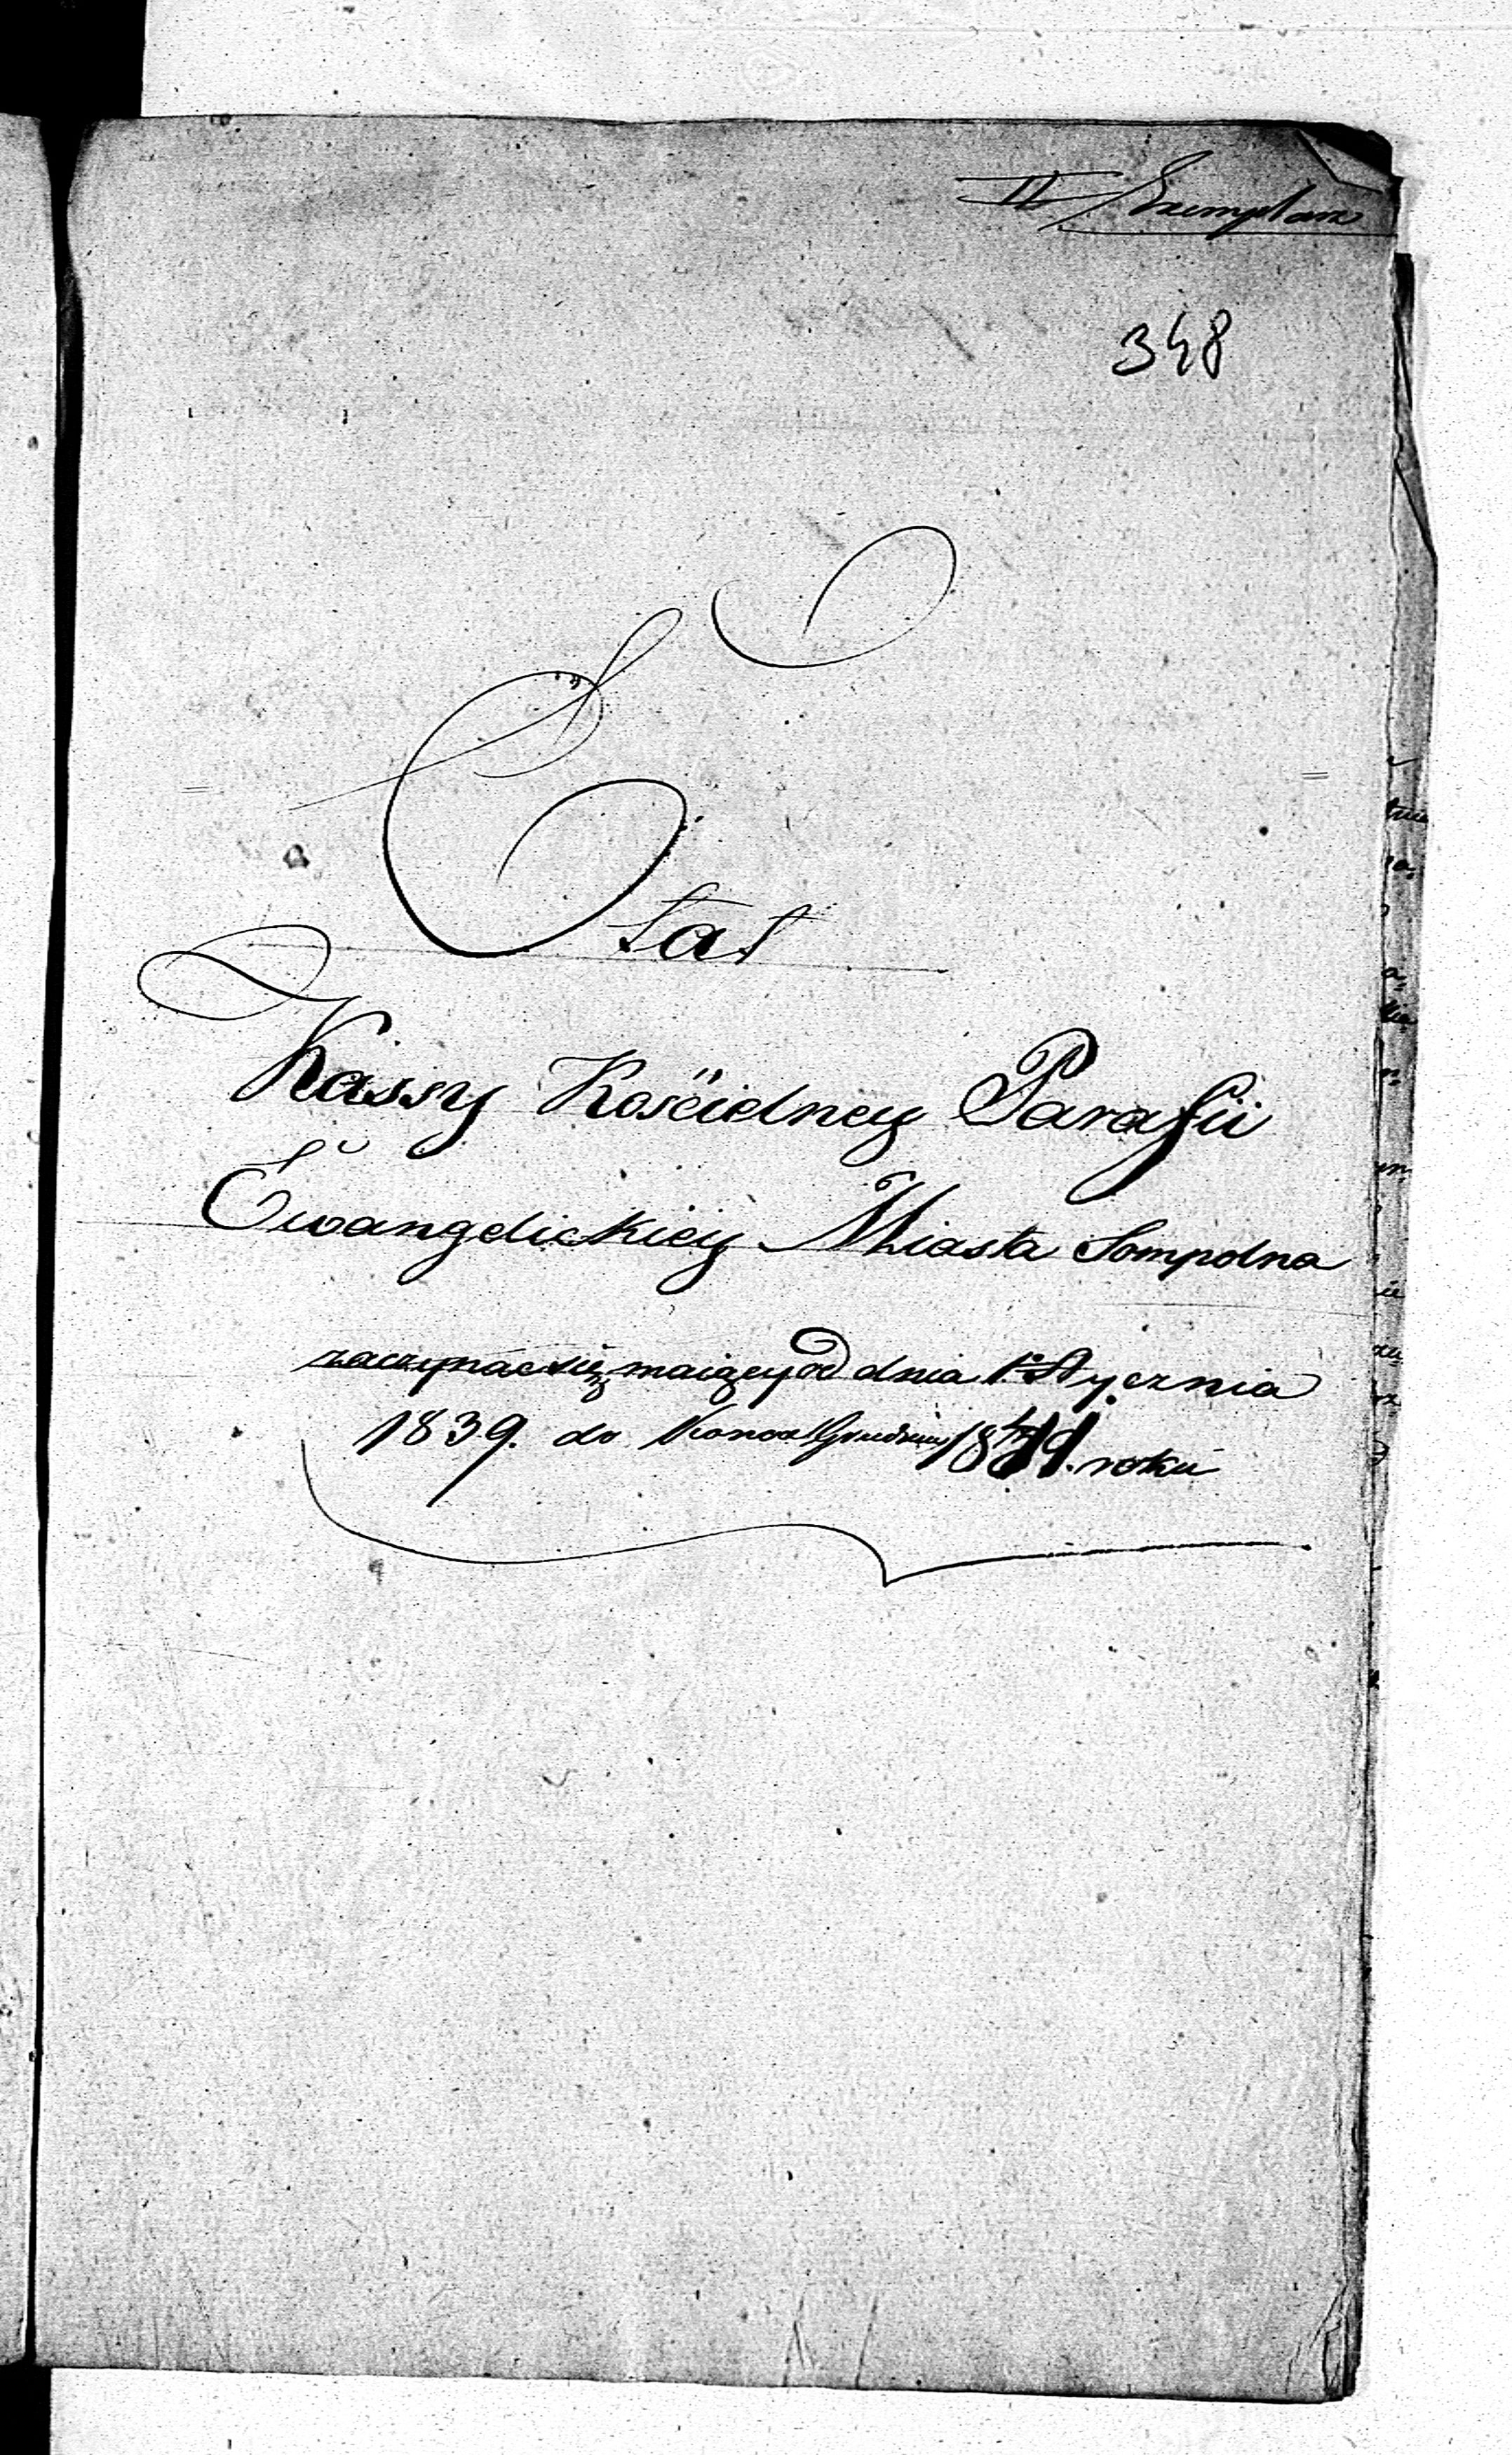 II Exemplarz
348
Etat
Kassy Kościelney Parafii
Ewangelickiey Miasta Sompolna
zaczynać się maiący od dnia 1. Stycznia
1839. do Konca Grudnia roku